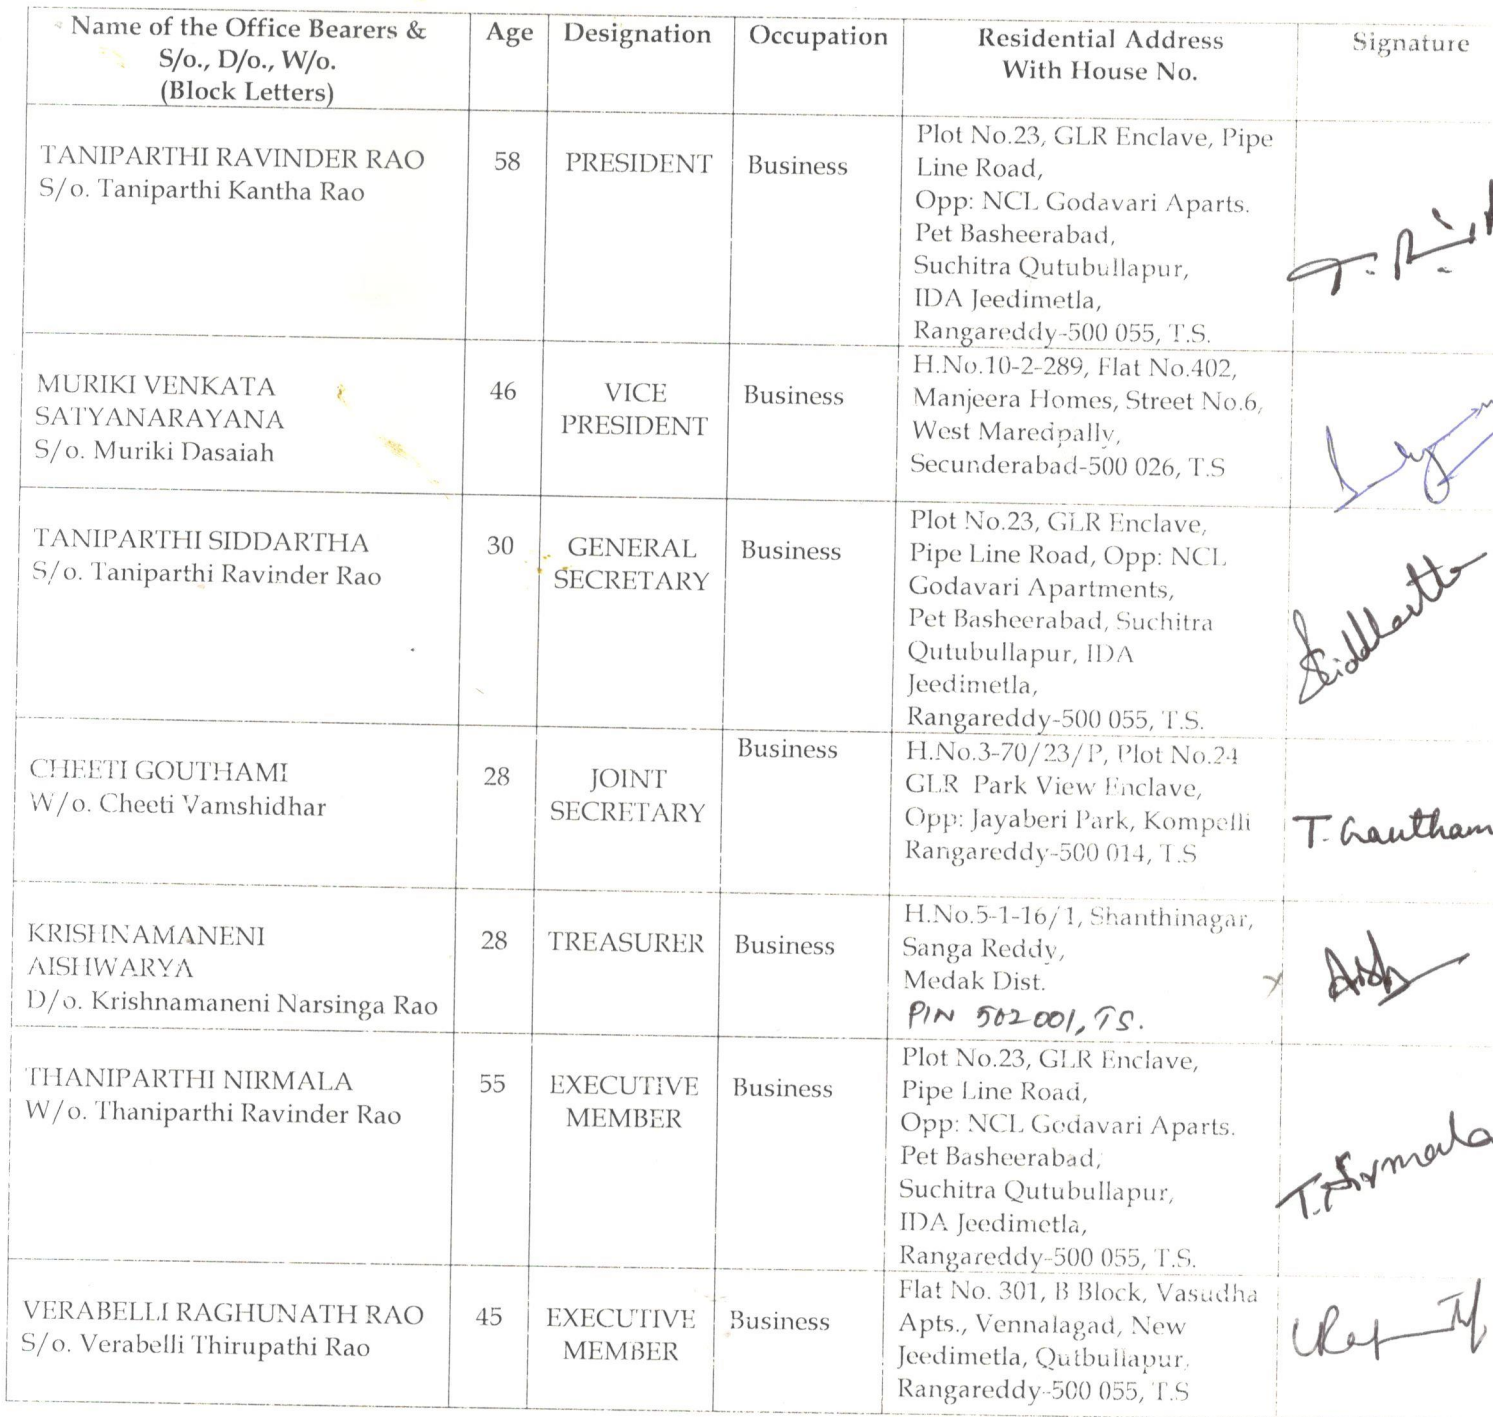 Name of the Office Bearers &
S/o., D/o., W/o.
(Block Letters)
Age
Designation
Occupation
Residential Address
With House No.
Signature
TANIPARTHI RAVINDER RAO
S/o. Taniparthi Kantha Rao
58
PRESIDENT
Business
Plot No.23, GLR Enclave, Pipe
Line Road,
Opp: NCL Godavari Aparts.
Pet Basheerabad,
Suchitra Qutubullapur,
IDA Jeedimetla,
Rangareddy-500 055, T.S.
MURIKI VENKATA
SATYANARAYANA
S/o. Muriki Dasaiah
46
VICE
PRESIDENT
Business
H.No.10-2-289, Flat No.402,
Manjeera Homes, Street No.6,
West Maredpally,
Secunderabad-500 026, T.S
TANIPARTHI SIDDARTHA
S/o. Taniparthi Ravinder Rao
30
GENERAL
SECRETARY
Business
Plot No.23, GLR Enclave,
Pipe Line Road, Opp: NCL
Godavari Apartments,
Pet Basheerabad, Suchitra
Qutubullapur, IDA
Jeedimetla,
Rangareddy-500 055, T.S.
Siddhartha
CHEETI GOUTHAMI
W/o. Cheeti Vamshidhar
28
JOINT
SECRETARY
Business
H.No.3-70/23/P, Plot No.24
GLR Park View Enclave,
Opp: Jayaberi Park, Kompelli
Rangareddy-500 014, T.S
T. Gautham
KRISHNAMANENI
AISHWARYA
D/o. Krishnamaneni Narsinga Rao
28
TREASURER
Business
H.No.5-1-16/1, Shanthinagar,
Sanga Reddy,
Medak Dist.
PIN 502001, TS.
Aish
THANIPARTHI NIRMALA
W/o. Thaniparthi Ravinder Rao
55
EXECUTIVE
MEMBER
Business
Plot No.23, GLR Enclave,
Pipe Line Road,
Opp: NCL Godavari Aparts.
Pet Basheerabad,
Suchitra Qutubullapur,
IDA Jeedimetla,
Rangareddy-500 055, T.S.
T. Nirmala
VERABELLI RAGHUNATH RAO
S/o. Verabelli Thirupathi Rao
45
EXECUTIVE
MEMBER
Business
Flat No. 301, B Block, Vasudha
Apts., Vennalagad, New
Jeedimetla, Qutbullapur,
Rangareddy-500 055, T.S